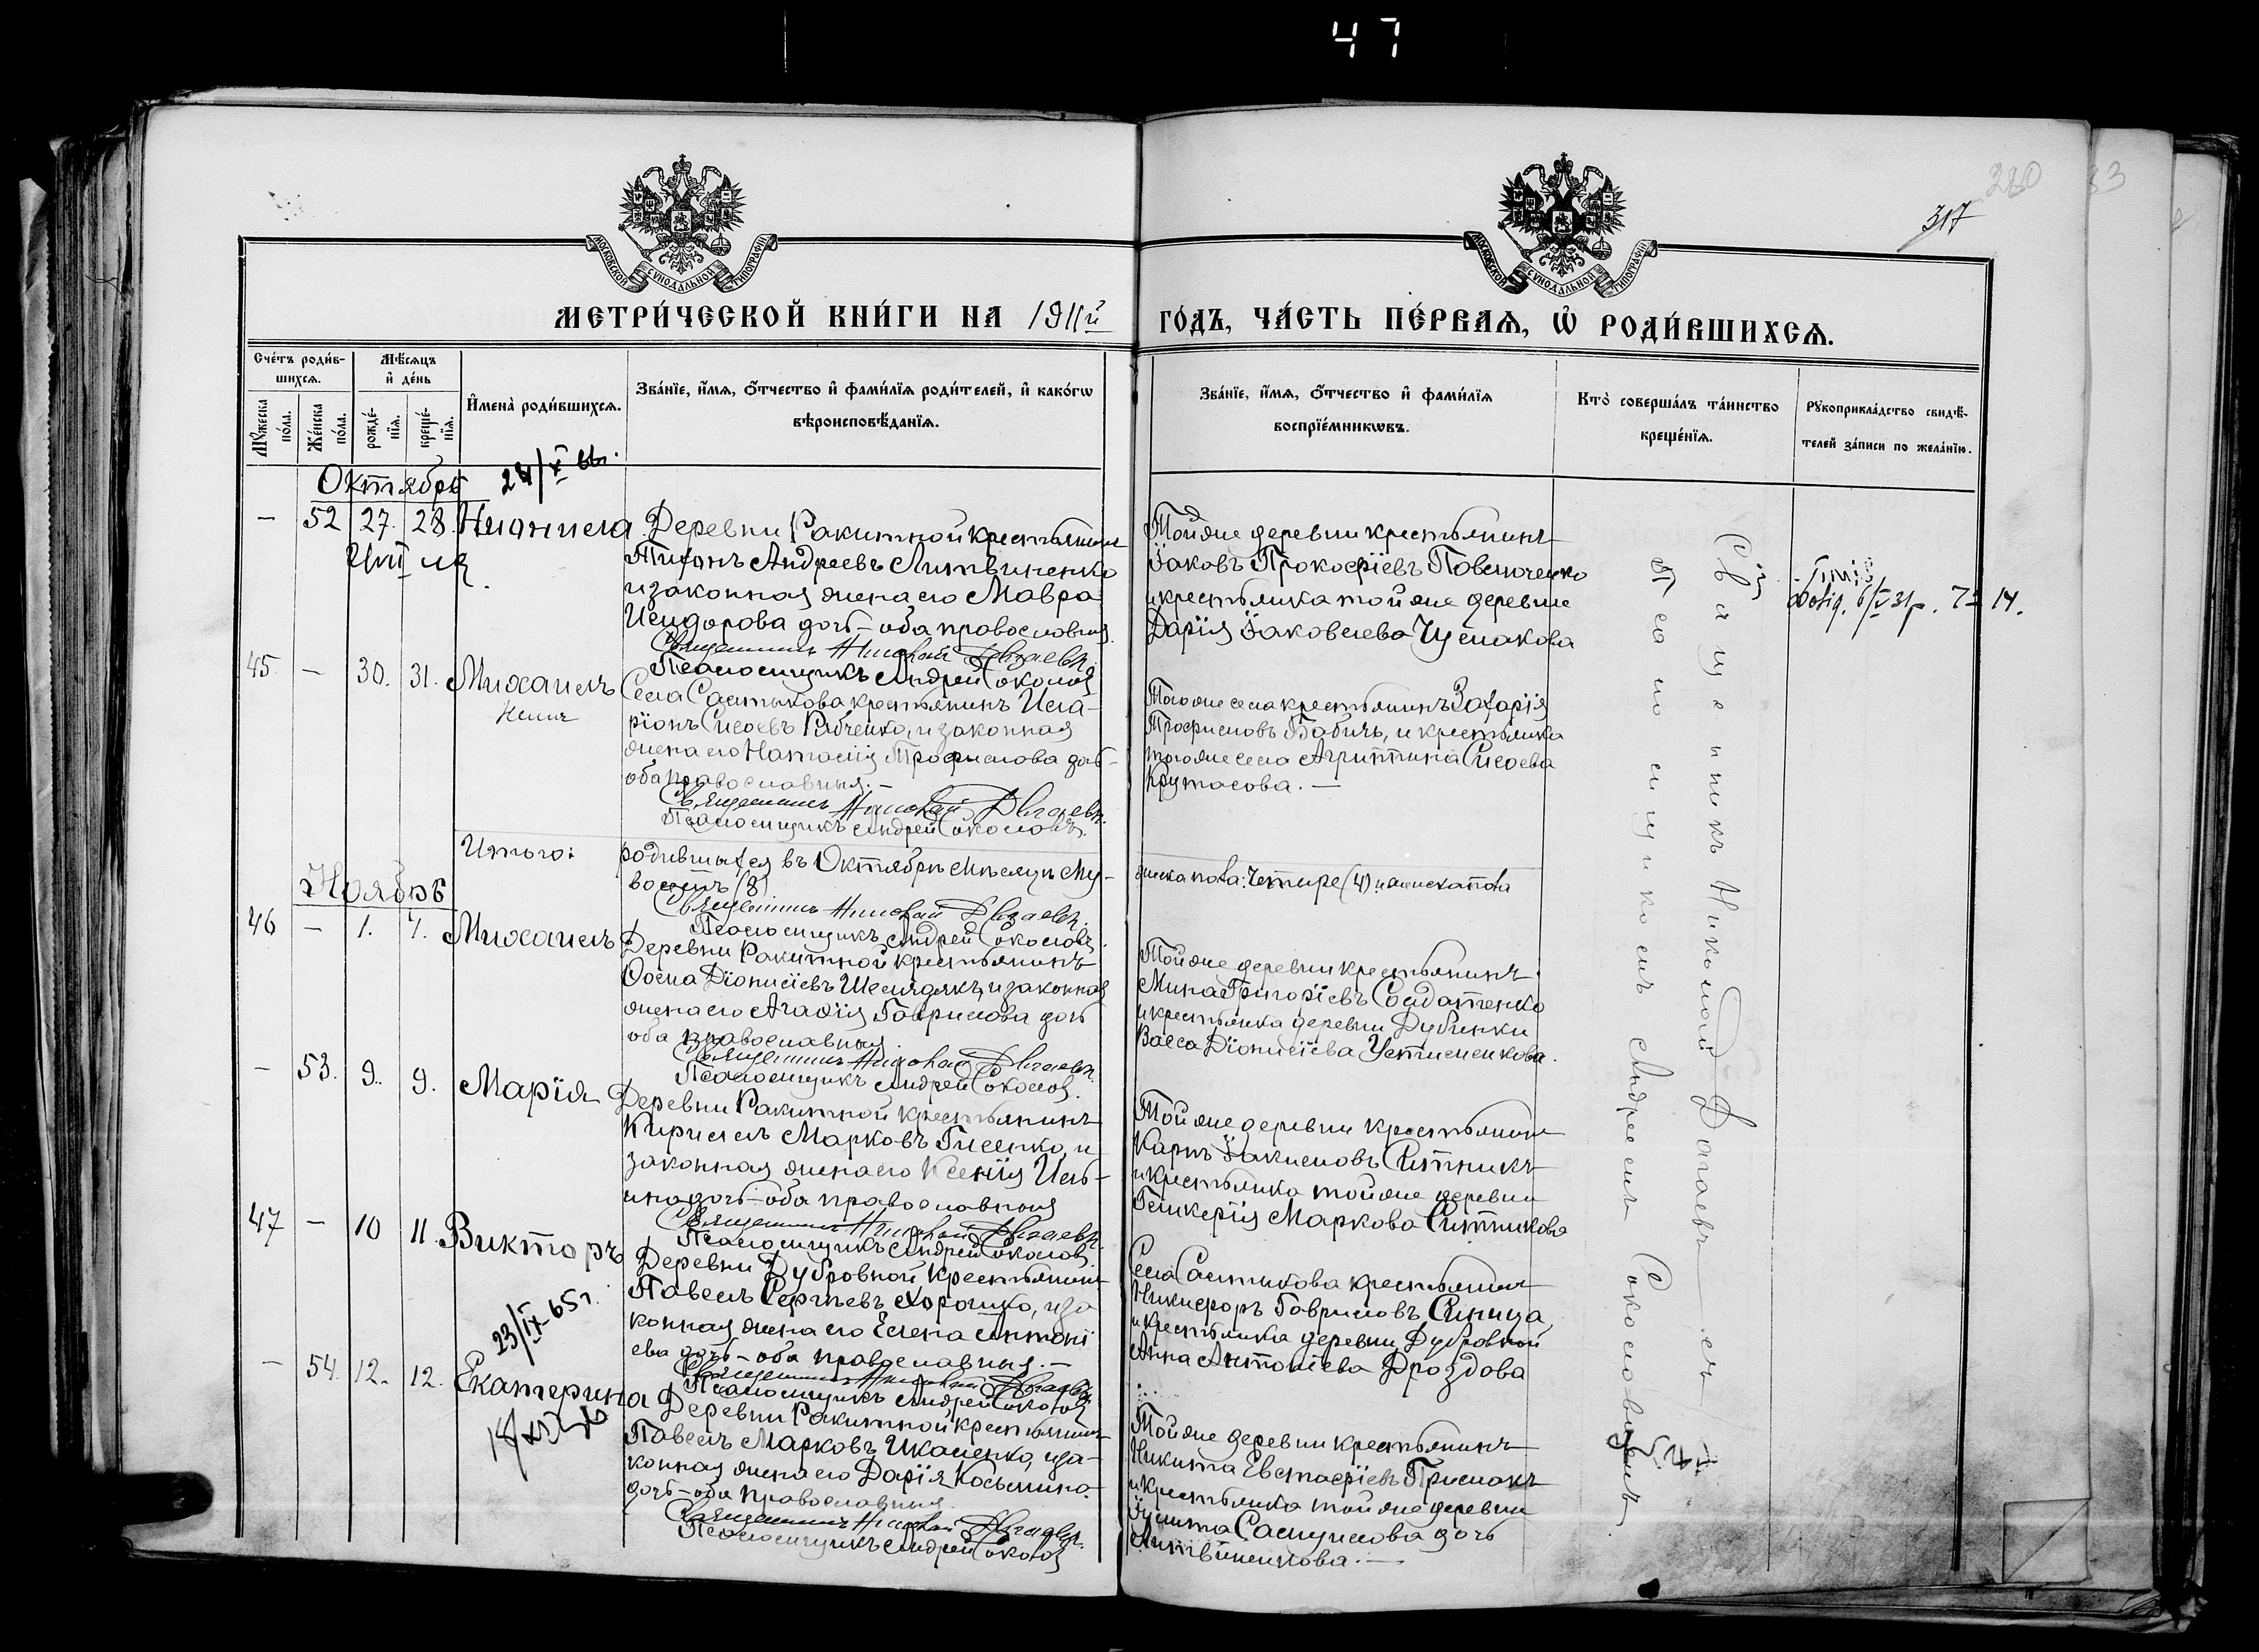 47
280
83
317
МОСКОВСКОЙ СѴНОДАЛЬНОЙ ТИПОГРАФІИ
МОСКОВСКОЙ СѴНОДАЛЬНОЙ ТИПОГРАФІИ
МЕТРИ́ЧЕСКОЙ КНИ́ГИ НА 1911й ГО́ДЪ, ЧА́СТЬ ПЕ́РВАѦ, Ѡ҆ РОДИ́ВШИХСѦ.
Сче́тъ роди́в-
шихсѧ.
Мꙋ́жеска по́ла.
Же́нска по́ла.
Мѣ́сѧцъ
и҆ де́нь
рожде́-нїѧ.
креще́-нїѧ.
И҆мена̀ роди́вшихсѧ.
Зва́нїе, и҆́мѧ, ѻ҆́тчество и҆ фами́лїѧ роди́телей, и҆ како́гѡ
вѣроисповѣ́данїѧ.
Зва́нїе, и҆́мѧ, ѻ҆́тчество и҆ фами́лїѧ
воспрїе́мникѡвъ.
Кто̀ соверша́лъ та́инство
креще́нїѧ.
Рꙋкоприкла́дство свидѣ́-
телей за́писи по жела́нїю.
Октябрь
— 52 27. 28. Неонила
Деревни Ракитной крестьянинъ
Тихонъ Андреевъ Литвиненко
и законная жена его Мавра
Исидорова дочь – оба православныя.
Священникъ Николай
Псаломщикъ Андрей Соколовъ
Той же деревни крестьянинъ
Іаковъ Прокофіевъ Павлюченко
и крестьянка той же деревни
Дарія Іаковлева Чумакова
45 — 30. 31. Михаилъ
Села Самыкова крестьянинъ Ила-
ріонъ Сисоевъ Рябченко, и законная
жена его Наталія Трофимова дочь –
оба православныя. —
Священникъ Николай
Псаломщикъ Андрей Соколовъ.
Того же села крестьянинъ Захарія
Трофимовъ Бабичъ, и крестьянка
того же села Агриппина Сисоева
Крутасова. —
Итого: родившихся въ Октябрѣ мѣсяцѣ му-
жеска пола: четыре (4) и женска пола
восемь (8)
Священникъ Николай
Псаломщикъ Андрей Соколовъ.
Ноябрь
46 — 1. Михаилъ
Деревни Ракитной крестьянинъ
Ѳома Діонисіевъ и законная
жена его Агафія Гаврилова дочь
оба православныя.
Священникъ Николай
Псаломщикъ Андрей Соколовъ.
Той же деревни крестьянинъ
Мина Григоріевъ Солдатенко
и крестьянка деревни Дубинки
Васса Діонисіева Устименкова.
— 53. 9. 9. Марія
Деревни Ракитной крестьянинъ
Кириллъ Марковъ Гисенко, и
законная жена его Ксенія Иль-
ина дочь – оба православныя
Священникъ Николай
Псаломщикъ Андрей Соколовъ
Той же деревни крестьянинъ
Карпъ Іакимовъ Ситникъ
и крестьянка той же деревни
Гликерія Маркова Ситникова
47 — 10 11. Викторъ
Деревни Дубровной крестьянинъ
Павелъ Сергѣевъ Хорошко, и за
конная жена его Елена Антоні
ева дочь – оба православныя. —
Священникъ Николай
Псаломщикъ Андрей Соколовъ
Села Самыкова крестьянинъ
Никифоръ Гавриловъ Синица,
и крестьянка деревни Дубровной
Анна Антоніева Дроздова
23/IX-65 г.
— 54. 12. 12. Екатерина
Деревни Ракитной крестьянинъ
Павелъ Марковъ Икаленко, и за-
конная жена его Дарія Косьмина
дочь – оба православныя.
Священникъ Николай
Псаломщикъ Андрей Соколовъ
Той же деревни крестьянинъ
Никита Евстафіевъ Примакъ
и крестьянка той же деревни
Самуилова дочь
Литвиненкова. —
Священникъ Николай съ
Псаломщикомъ Андреемъ Соколовымъ.